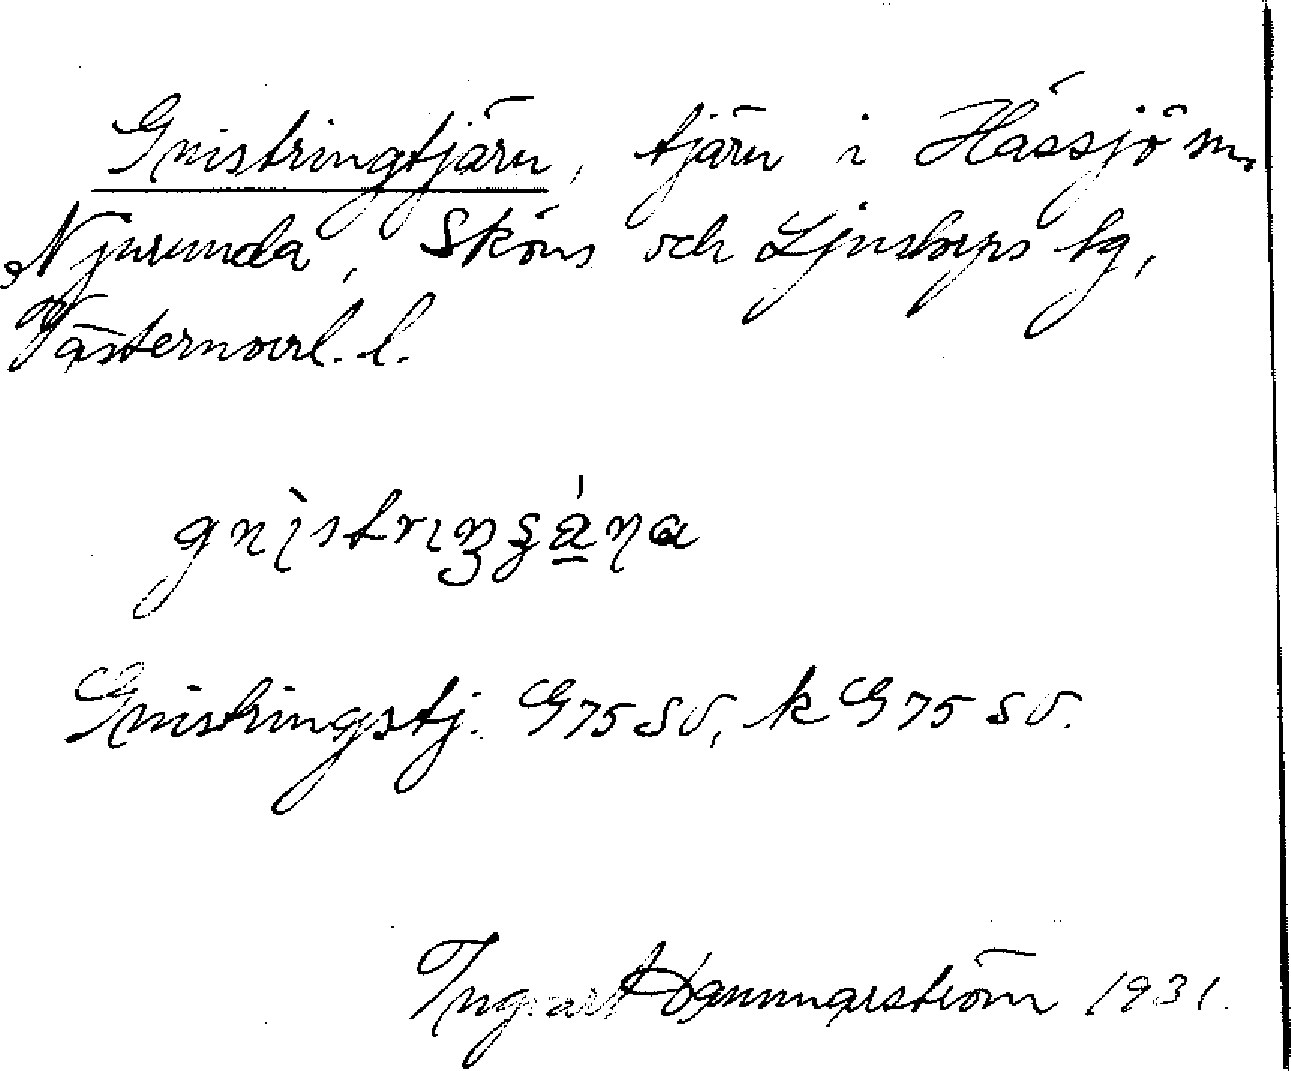 Gnistringtjärn, tjärn i Hässjö sn,
Njurunda, Sköns och Ljustorps tg,
Västernorrl. l.
gnìstrıŋʂá̱ɳa
Gnistringstj. G 75 SV, k G 75 SV.
Ingvart Hammarström 1931.